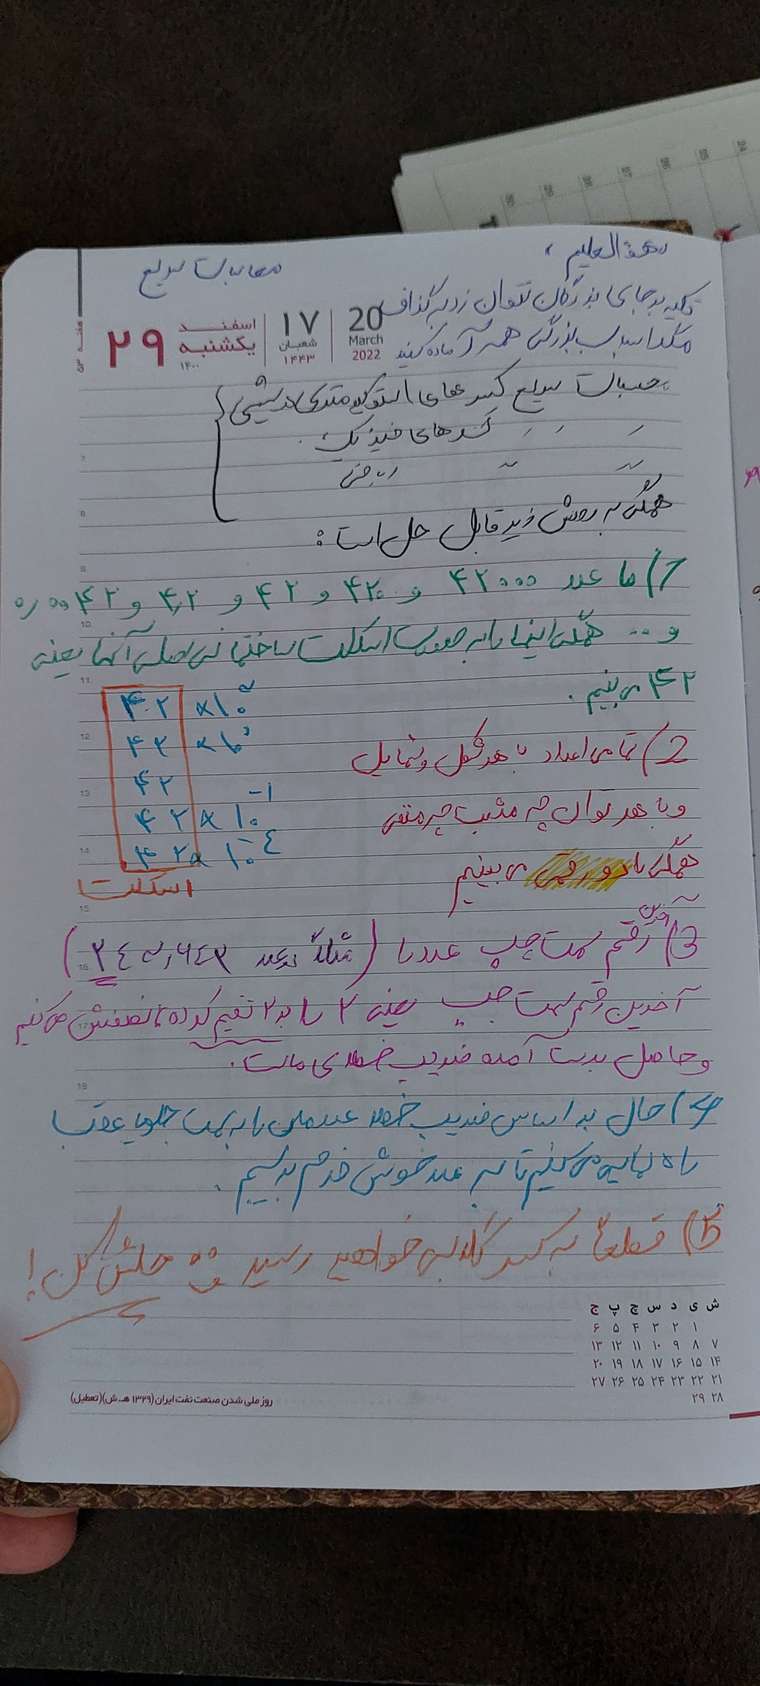 هوالعلیم
محاسبات سریع
تکیه بر جای بزرگان نتوان زد به گزاف
مگر اسباب بزرگی همه آماده کنید
هفته ۵۳
۲۹
اسفند
یکشنبه
۱۴۰۰
۱۷
شعبان
۱۴۴۳
20
March
2022
حسبات سریع کسرهای استوکیومتری در شیمی
〃 〃 کسرهای فیزیک
〃 〃 ریاضی
همگی به روش زیر قابل حل است:
1) ما عدد ۴۲۰۰۰ و ۴۲۰ و ۴۲ و ۴٫۲ و ۰٫۰۰۴۲
و ... همگی اینها را به صورت اسکلت ساختمانی اصلی آنها یعنی
۴۲ می‌بینیم.
۴۲ ×۱۰^۳
۴۲ ×۱۰^۱
۴۲
۴۲ × ۱۰^-۱
۴۲ × ۱۰^-٤
اسکلت
2) تمامی اعداد با هر شکل و شمایل
و با هر توان چه مثبت چه منفی
همگی را دو رقمی می‌بینیم
3) آخرین رقم سمت چپ عدد را (مثلاً عدد ۶٤۳ ٢٤)
آخرین رقم سمت چپ یعنی ۲ را بر ۲ تقسیم کرده تا نصفش می‌کنیم
و حاصل بدست آمده ضریب خطای ماست.
4) حال بر اساس ضریب خطا عدد ملی را به سمت جلو یا عقب
راه نمایی می‌کنیم تا به عدد خوش فرم برسیم.
5) قطعاً به کسر گلابی خواهید رسید و حلش کن!
ش ی د س چ پ ج
۱ ۲ ۳ ۴ ۵ ۶
۷ ۸ ۹ ۱۰ ۱۱ ۱۲ ۱۳
۱۴ ۱۵ ۱۶ ۱۷ ۱۸ ۱۹ ۲۰
۲۱ ۲۲ ۲۳ ۲۴ ۲۵ ۲۶ ۲۷
۲۸ ۲۹
روز ملی شدن صنعت نفت ایران (۱۳۲۹ هـ.ش)(تعطیل)